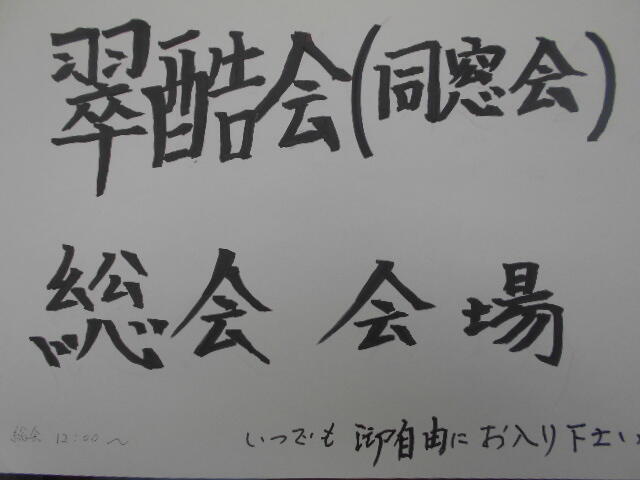 翠酷会(同窓会)
総会 会場
総会 12:00~ いつでも 御自由に お入り下さい